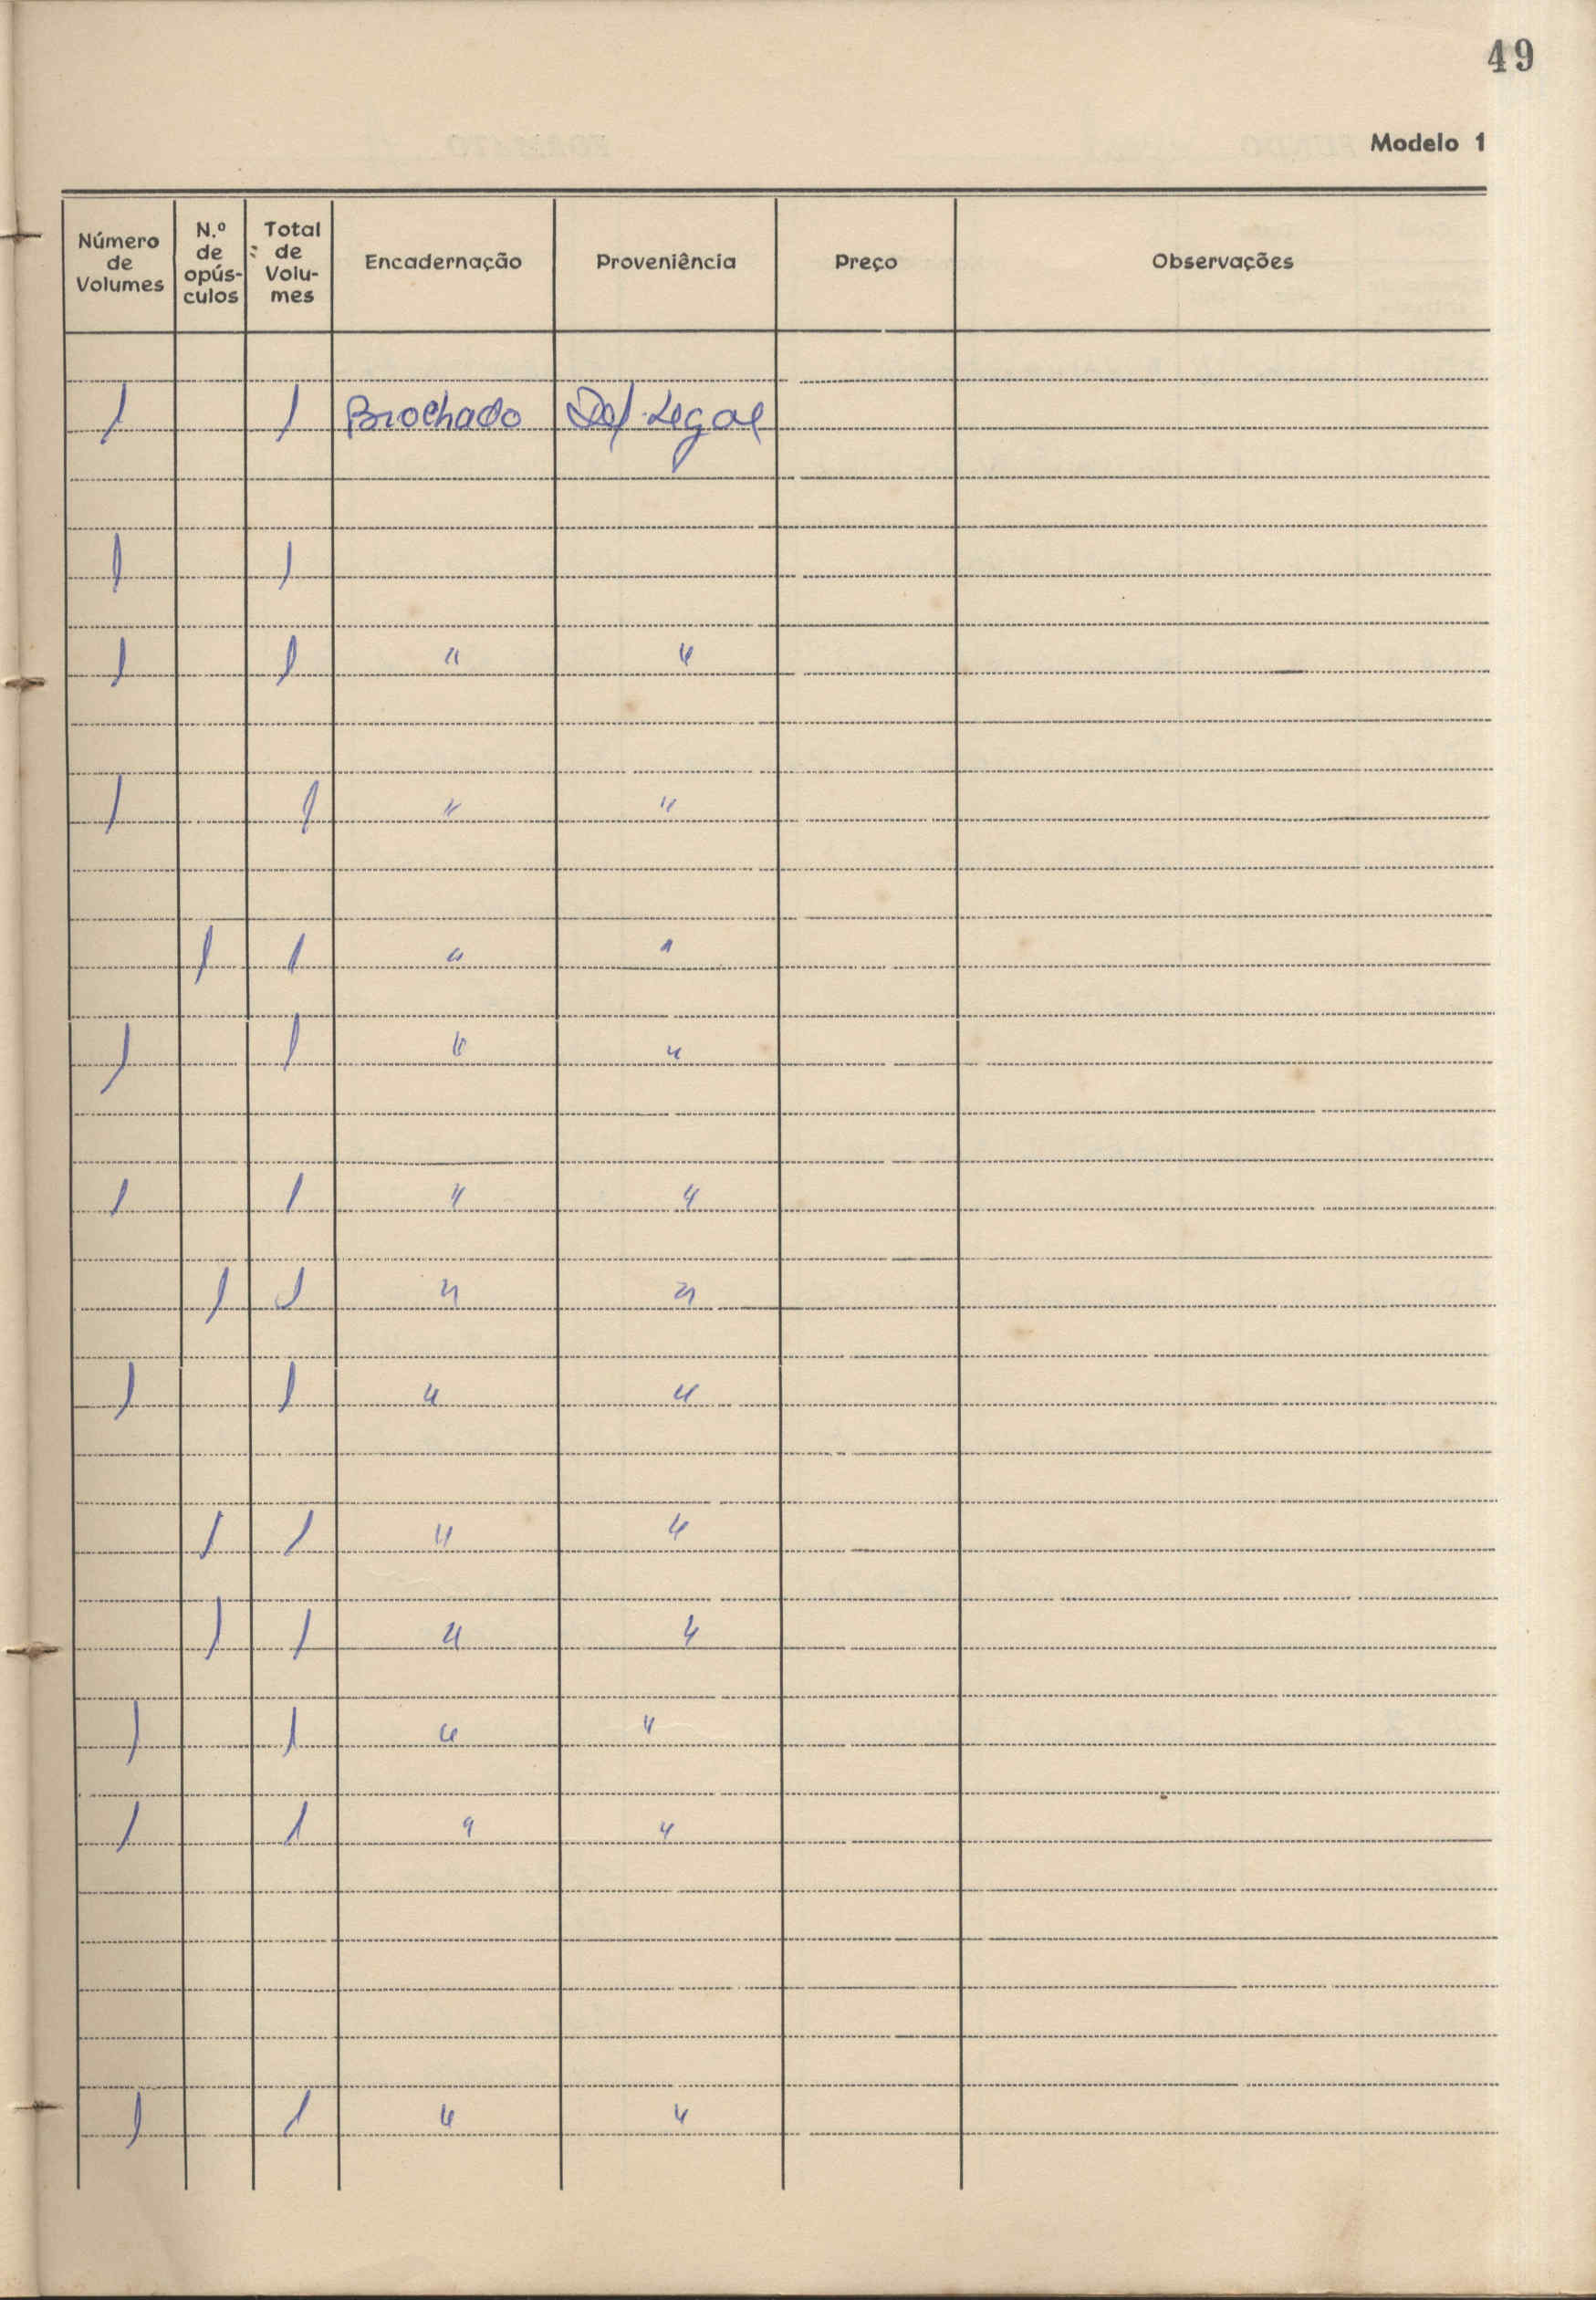 49
Modelo 1
Número de Volumes | N.º de opús-culos | Total de Volu-mes | Encadernação | Proveniência | Preço | Observações
1 | | 1 | Brochado | Dep. Legal
1 | | 1
1 | | 1 | " | "
1 | | 1 | " | "
| 1 | 1 | " | "
1 | | 1 | " | "
1 | | 1 | " | "
| 1 | 1 | " | "
1 | | 1 | " | "
| 1 | 1 | " | "
| 1 | 1 | " | "
1 | | 1 | " | "
1 | | 1 | " | "
1 | | 1 | " | "